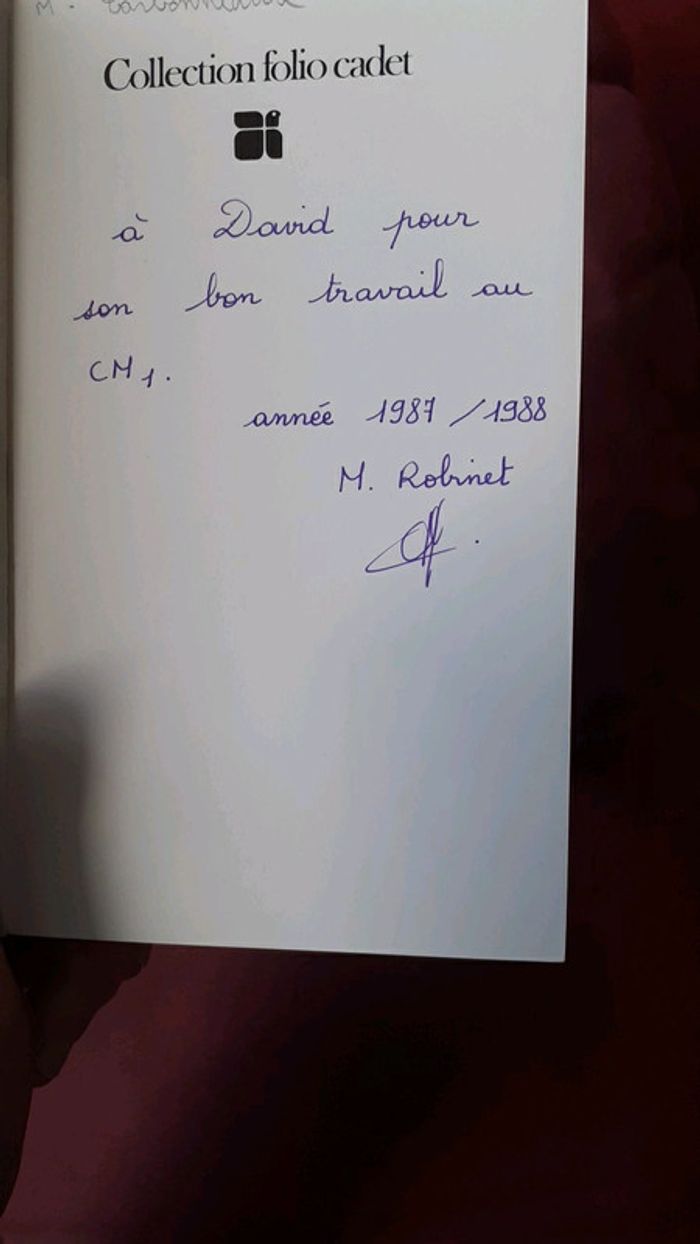 M.
Collection folio cadet
à David pour
son bon travail au
CM1.
année 1987/1988
M. Robinet